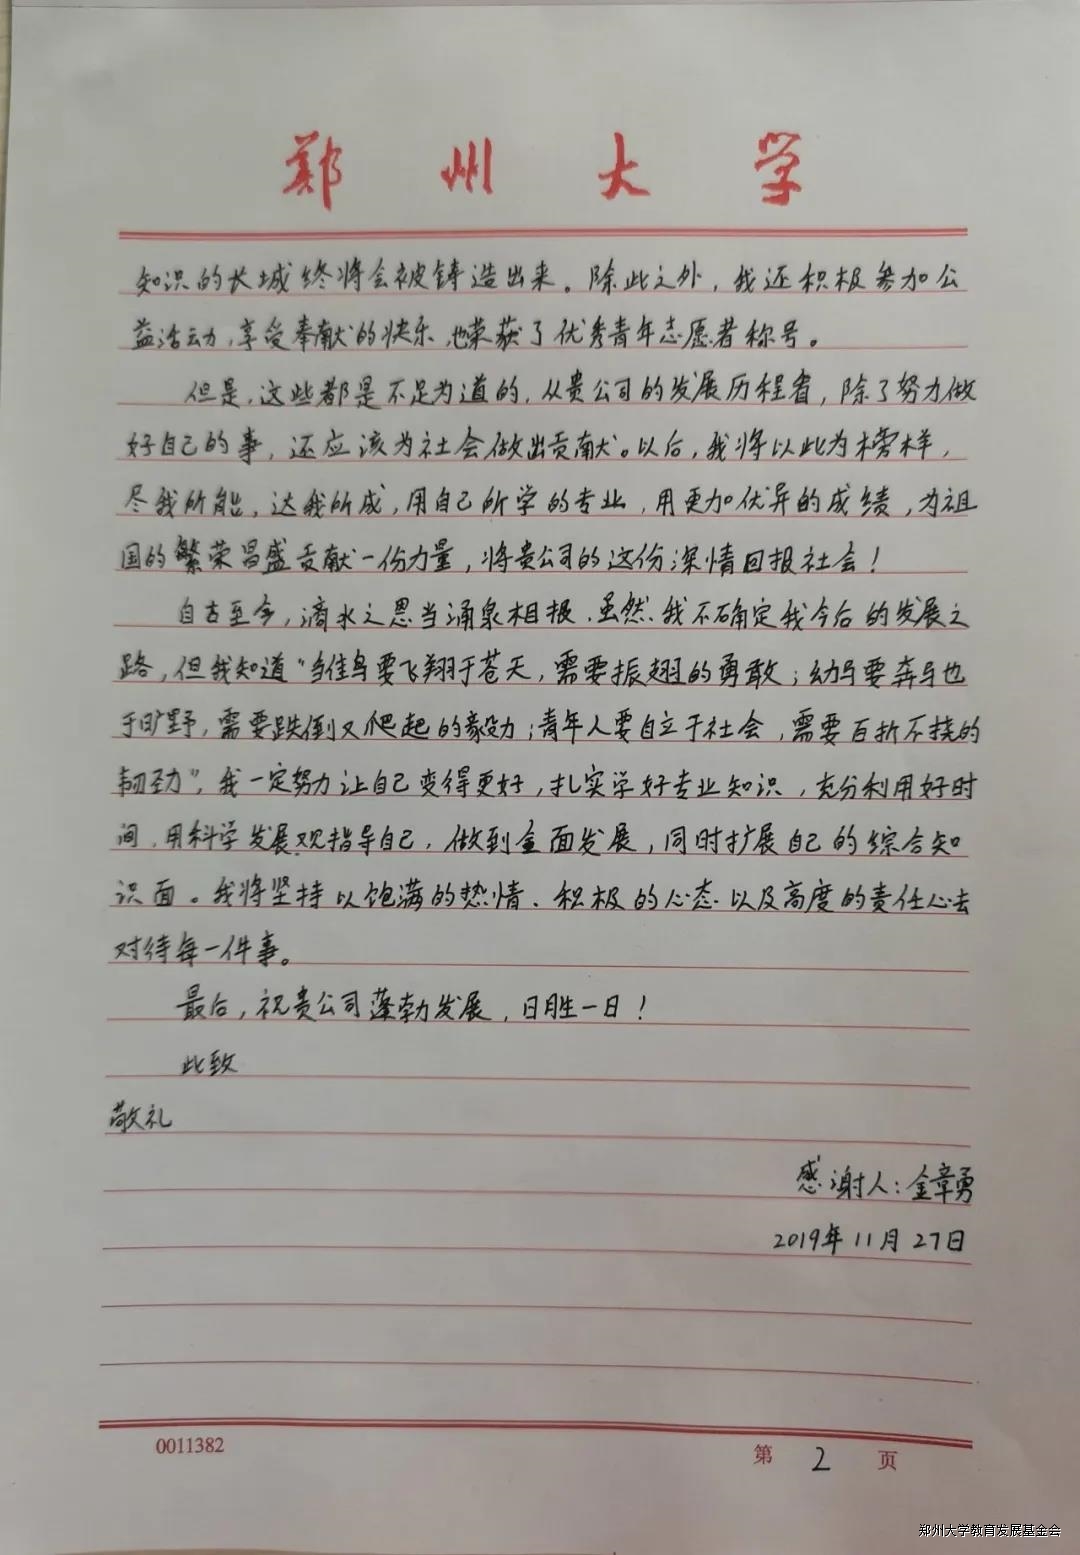 郑州大学
知识的长城终将会被铸造出来。除此之外，我还积极参加公
益活动，享受奉献的快乐，也荣获了优秀青年志愿者称号。
但是，这些都是不足为道的，从贵公司的发展历程看，除了努力做
好自己的事，还应该为社会做出贡献。以后，我将以此为榜样，
尽我所能，达我所成，用自己所学的专业，用更加优异的成绩，为祖
国的繁荣昌盛贡献一份力量，将贵公司的这份深情回报社会！
自古至今，滴水之恩当涌泉相报。虽然，我不确定我今后的发展之
路，但我知道“雏鸟要飞翔于苍天，需要振翅的勇敢；幼马要奔驰
于旷野，需要跌倒又爬起的毅力；青年人要自立于社会，需要百折不挠的
韧劲”，我一定努力让自己变得更好，扎实学好专业知识，充分利用好时
间，用科学发展观指导自己，做到全面发展，同时扩展自己的综合知
识面。我将坚持以饱满的热情、积极的心态以及高度的责任心去
对待每一件事。
最后，祝贵公司蓬勃发展，日胜一日！
此致
敬礼
感谢人：金章勇
2019年11月27日
0011382
第2页
郑州大学教育发展基金会